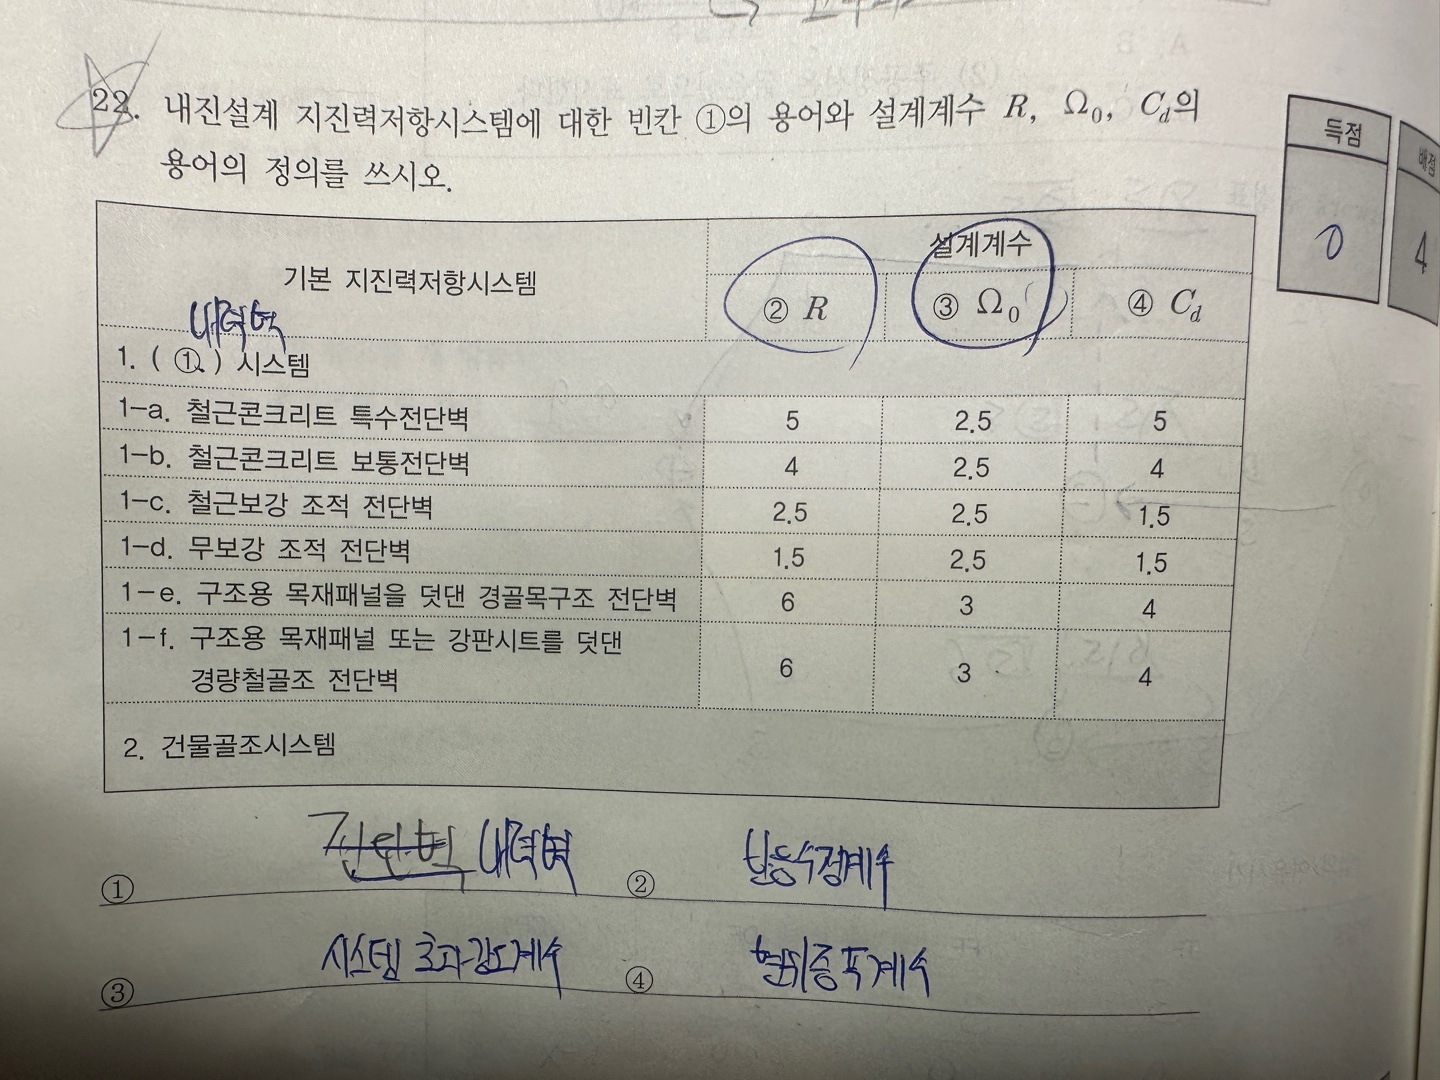 22. 내진설계 지진력저항시스템에 대한 빈칸 ①의 용어와 설계계수 R, Ω₀, C_d의
용어의 정의를 쓰시오.
득점
배점
0
4
기본 지진력저항시스템
설계계수
② R
③ Ω₀
④ C_d
내력벽
1. ( ① ) 시스템
1-a. 철근콘크리트 특수전단벽 5 2.5 5
1-b. 철근콘크리트 보통전단벽 4 2.5 4
1-c. 철근보강 조적 전단벽 2.5 2.5 1.5
1-d. 무보강 조적 전단벽 1.5 2.5 1.5
1-e. 구조용 목재패널을 덧댄 경골목구조 전단벽 6 3 4
1-f. 구조용 목재패널 또는 강판시트를 덧댄
경량철골조 전단벽 6 3 4
2. 건물골조시스템
① 전단벽 내력벽 ② 반응수정계수
③ 시스템 초과강도계수 ④ 변위증폭계수